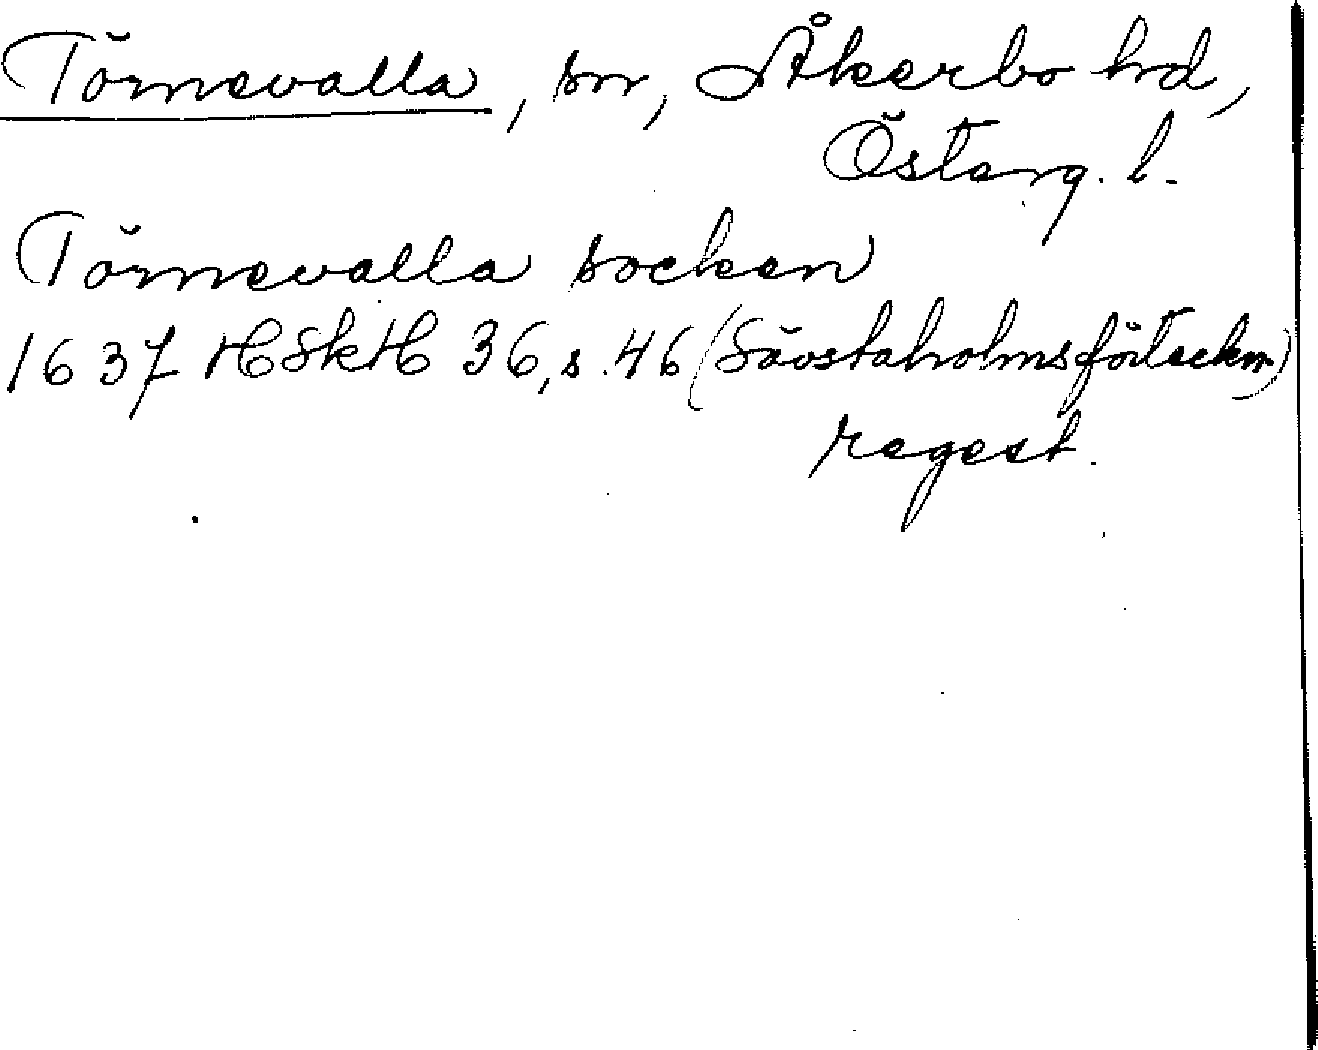 Törnevalla, sn, Åkerbo hd,
Österg. l.
Törnevalla socken
1637 HSkH 36, s. 46 (Sävstaholmsförteckn.)
regest.